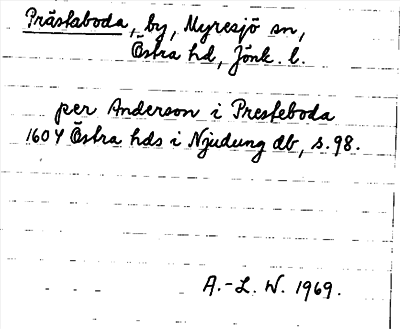 Prästaboda, by, Myresjö sn,
Östra hd, Jönk. l.
per Anderson i Presteboda
1604 Östra hds i Njudung db, s. 98.
A.-L. W. 1969.